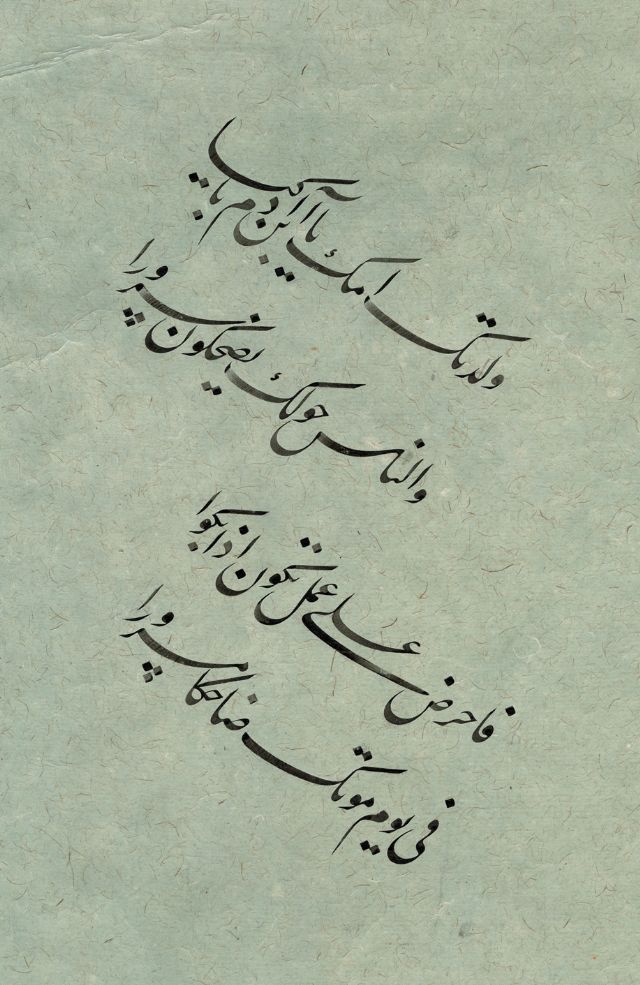 ولدتک امک یا ابن آدم باکیا
والناس حولک یضحکون سرورا
فاحرض علی عمل تکون اذا بکوا
فی یوم موتک ضاحکا مسرورا